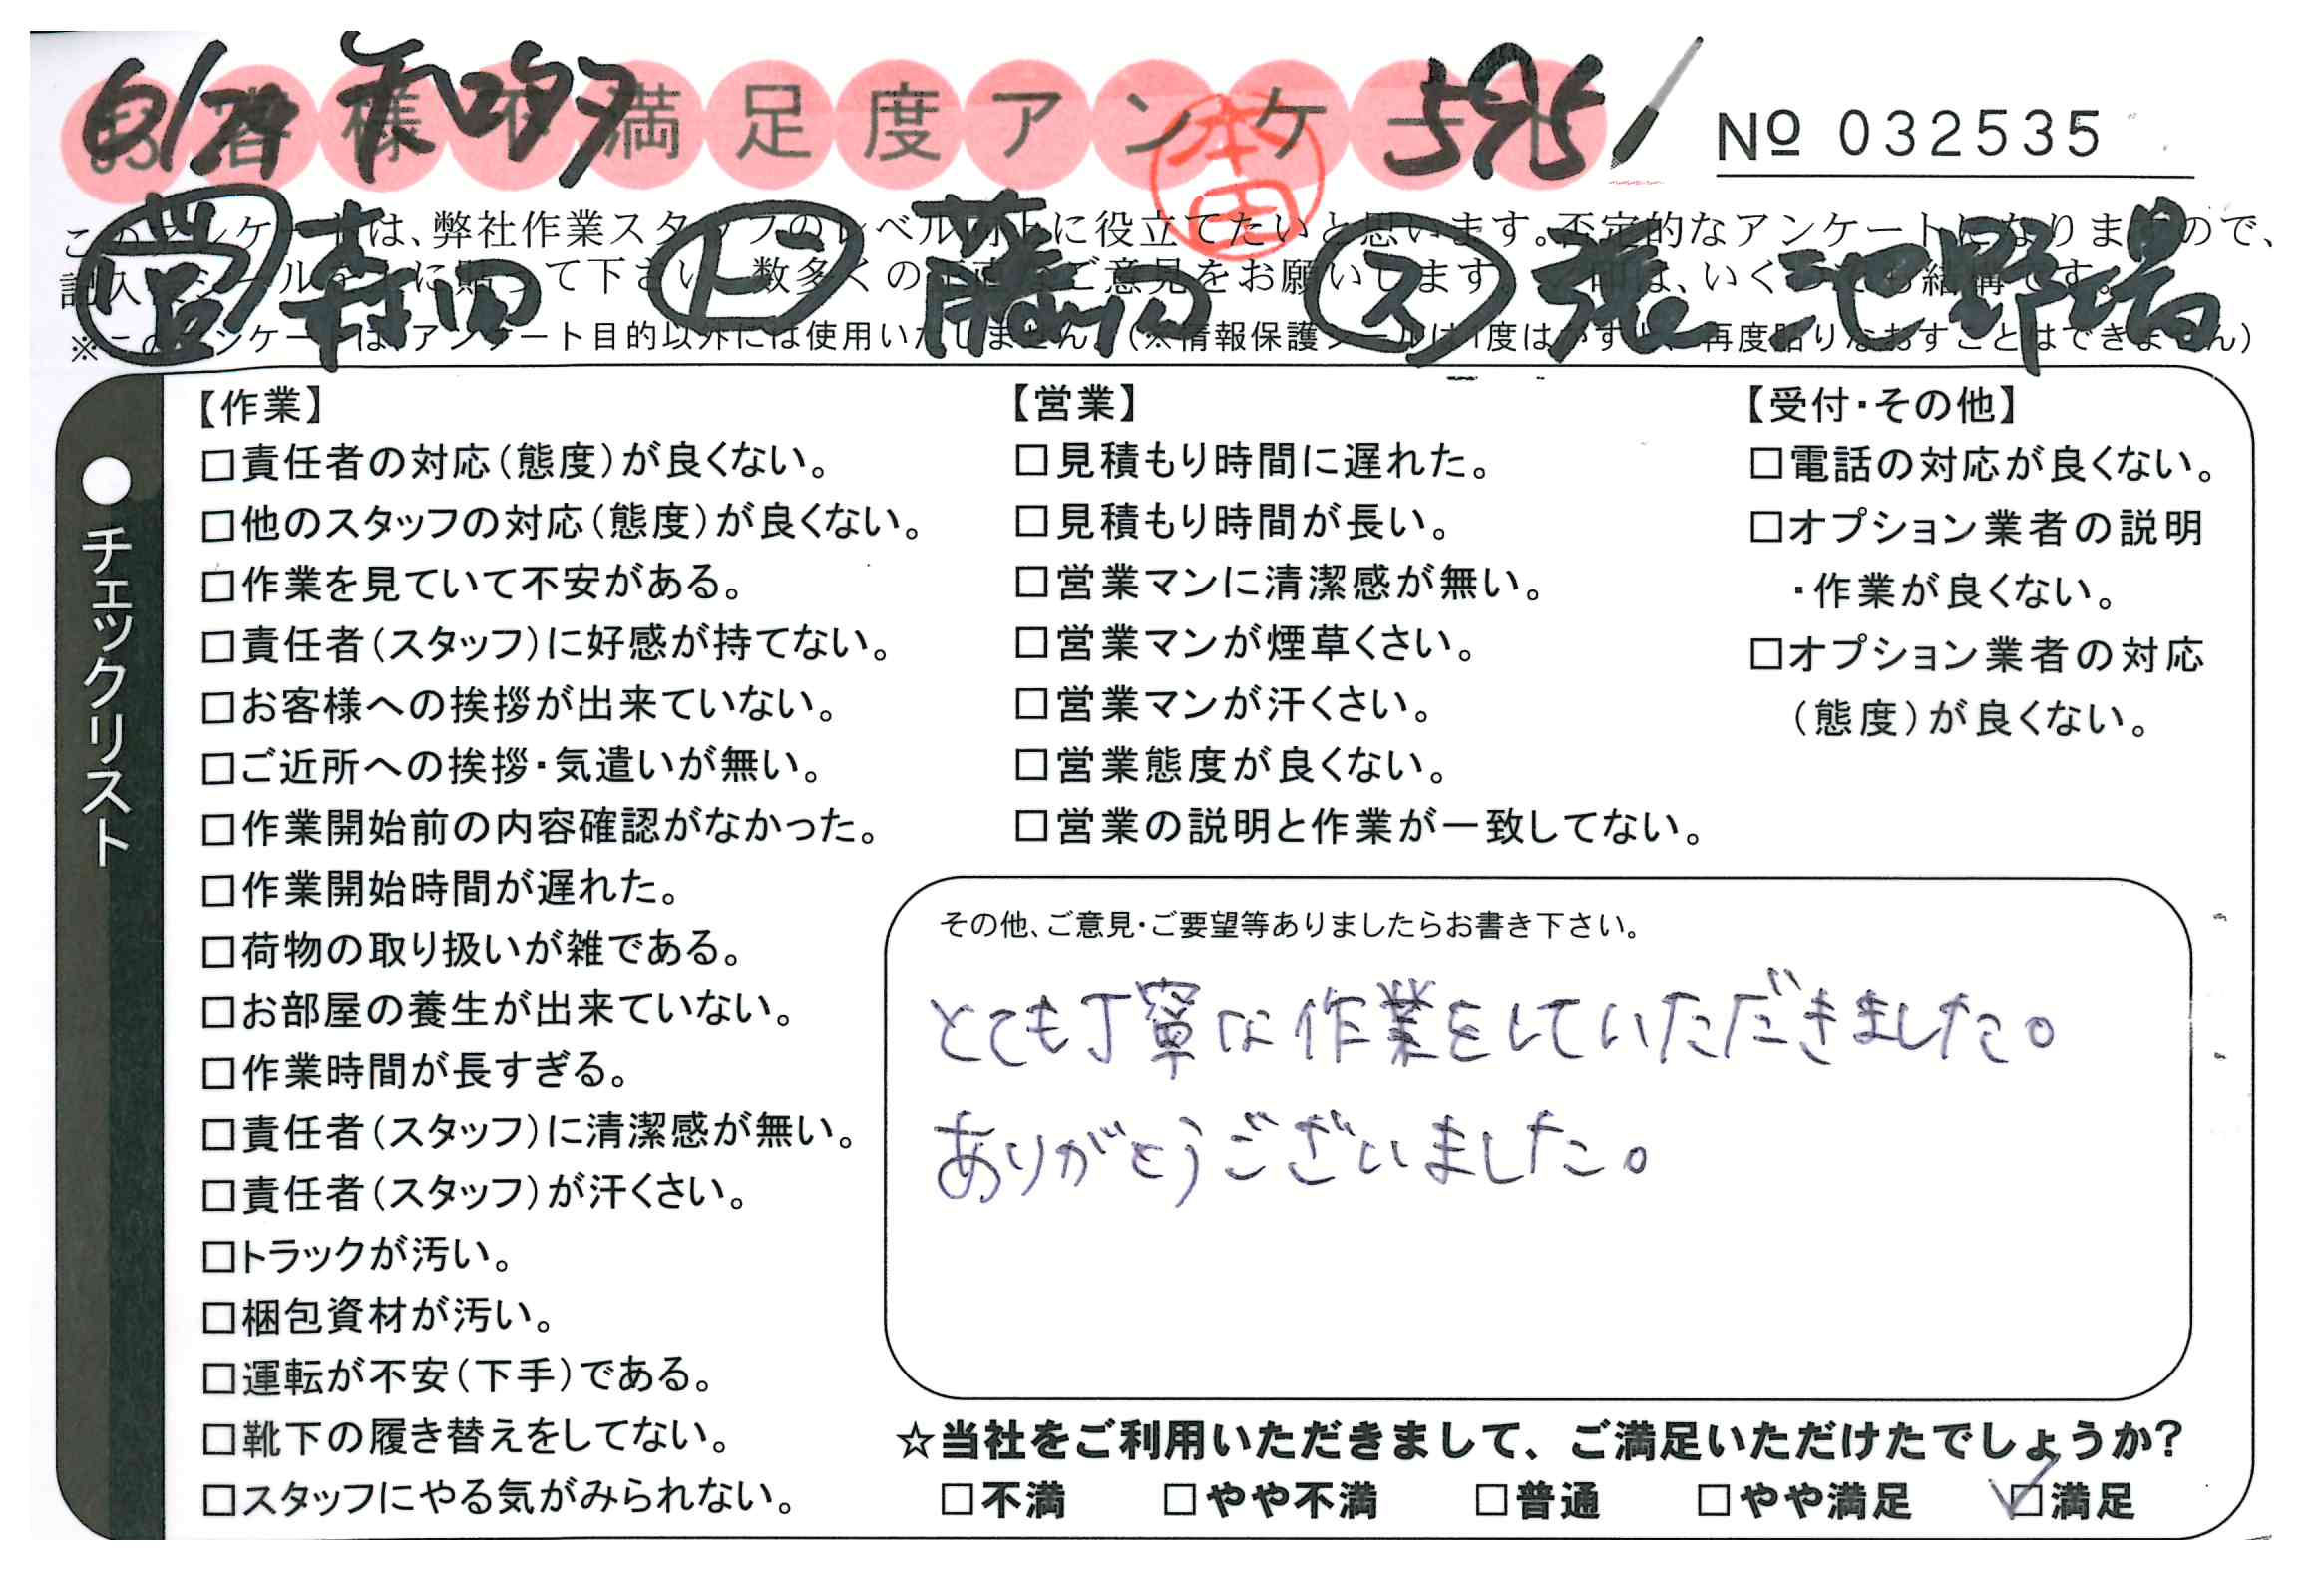 お客様不満足度アンケート
6/29
595
本田
№ 032535
このアンケートは、弊社作業スタッフのレベル向上に役立てたいと思います。否定的なアンケートになりますので、
※このアンケートは、アンケート目的以外には使用いたしません。(※情報保護シールは1度はがすと、再度貼りなおすことはできません)
営 森田 ト 藤 ス 張 池野 場
●チェックリスト
【作業】
□責任者の対応(態度)が良くない。
□他のスタッフの対応(態度)が良くない。
□作業を見ていて不安がある。
□責任者(スタッフ)に好感が持てない。
□お客様への挨拶が出来ていない。
□ご近所への挨拶・気遣いが無い。
□作業開始前の内容確認がなかった。
□作業開始時間が遅れた。
□荷物の取り扱いが雑である。
□お部屋の養生が出来ていない。
□作業時間が長すぎる。
□責任者(スタッフ)に清潔感が無い。
□責任者(スタッフ)が汗くさい。
□トラックが汚い。
□梱包資材が汚い。
□運転が不安(下手)である。
□靴下の履き替えをしてない。
□スタッフにやる気がみられない。
【営業】
□見積もり時間に遅れた。
□見積もり時間が長い。
□営業マンに清潔感が無い。
□営業マンが煙草くさい。
□営業マンが汗くさい。
□営業態度が良くない。
□営業の説明と作業が一致してない。
【受付・その他】
□電話の対応が良くない。
□オプション業者の説明
・作業が良くない。
□オプション業者の対応
(態度)が良くない。
その他、ご意見・ご要望等ありましたらお書き下さい。
とても丁寧な作業をしていただきました。
ありがとうございました。
☆当社をご利用いただきまして、ご満足いただけたでしょうか?
□不満 □やや不満 □普通 □やや満足 ☑満足